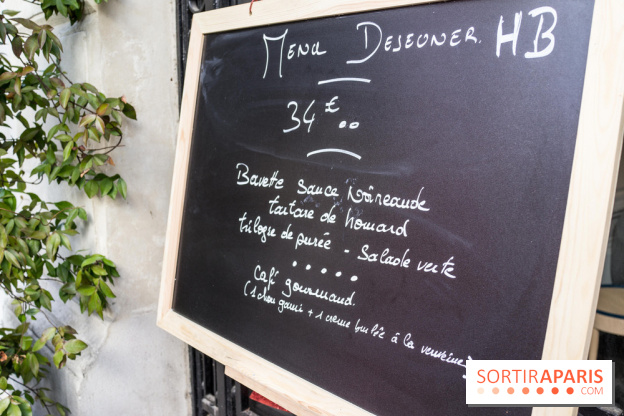 Menu Dejeuner. HB
34€..
Bavette sauce
tartare de homard
trilogie de purée - Salade verte
.....
Café gourmand.
(1 chou garni + 1 creme brulée à la verveine)
SORTIRAPARIS
.COM